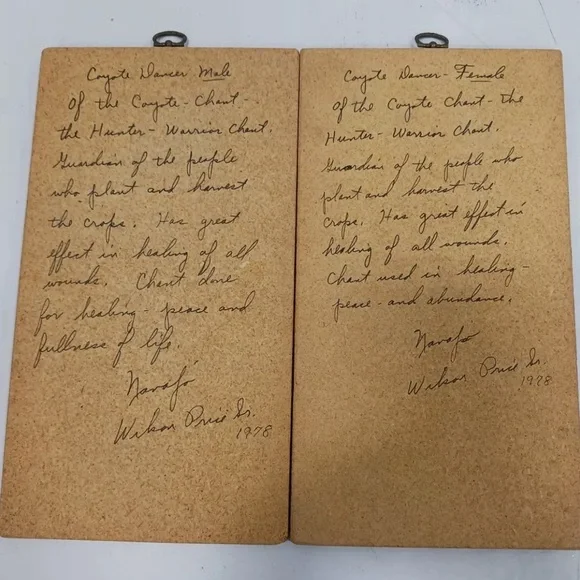 Coyote Dancer Male
Of the Coyote - Chant -
the Hunter - Warrior Chant.
Guardian of the people
who plant and harvest
the crops. Has great
effect in healing of all
wounds. Chant done
for healing - peace and
fullness of life.
Navajo
Wilson Price Sr.
1978
Coyote Dancer - Female
Of the Coyote Chant - the
Hunter - Warrior Chant.
Guardian of the people who
plant and harvest the
crops. Has great effect in
healing of all wounds.
Chant used in healing -
peace - and abundance.
Navajo
Wilson Price Sr.
1978